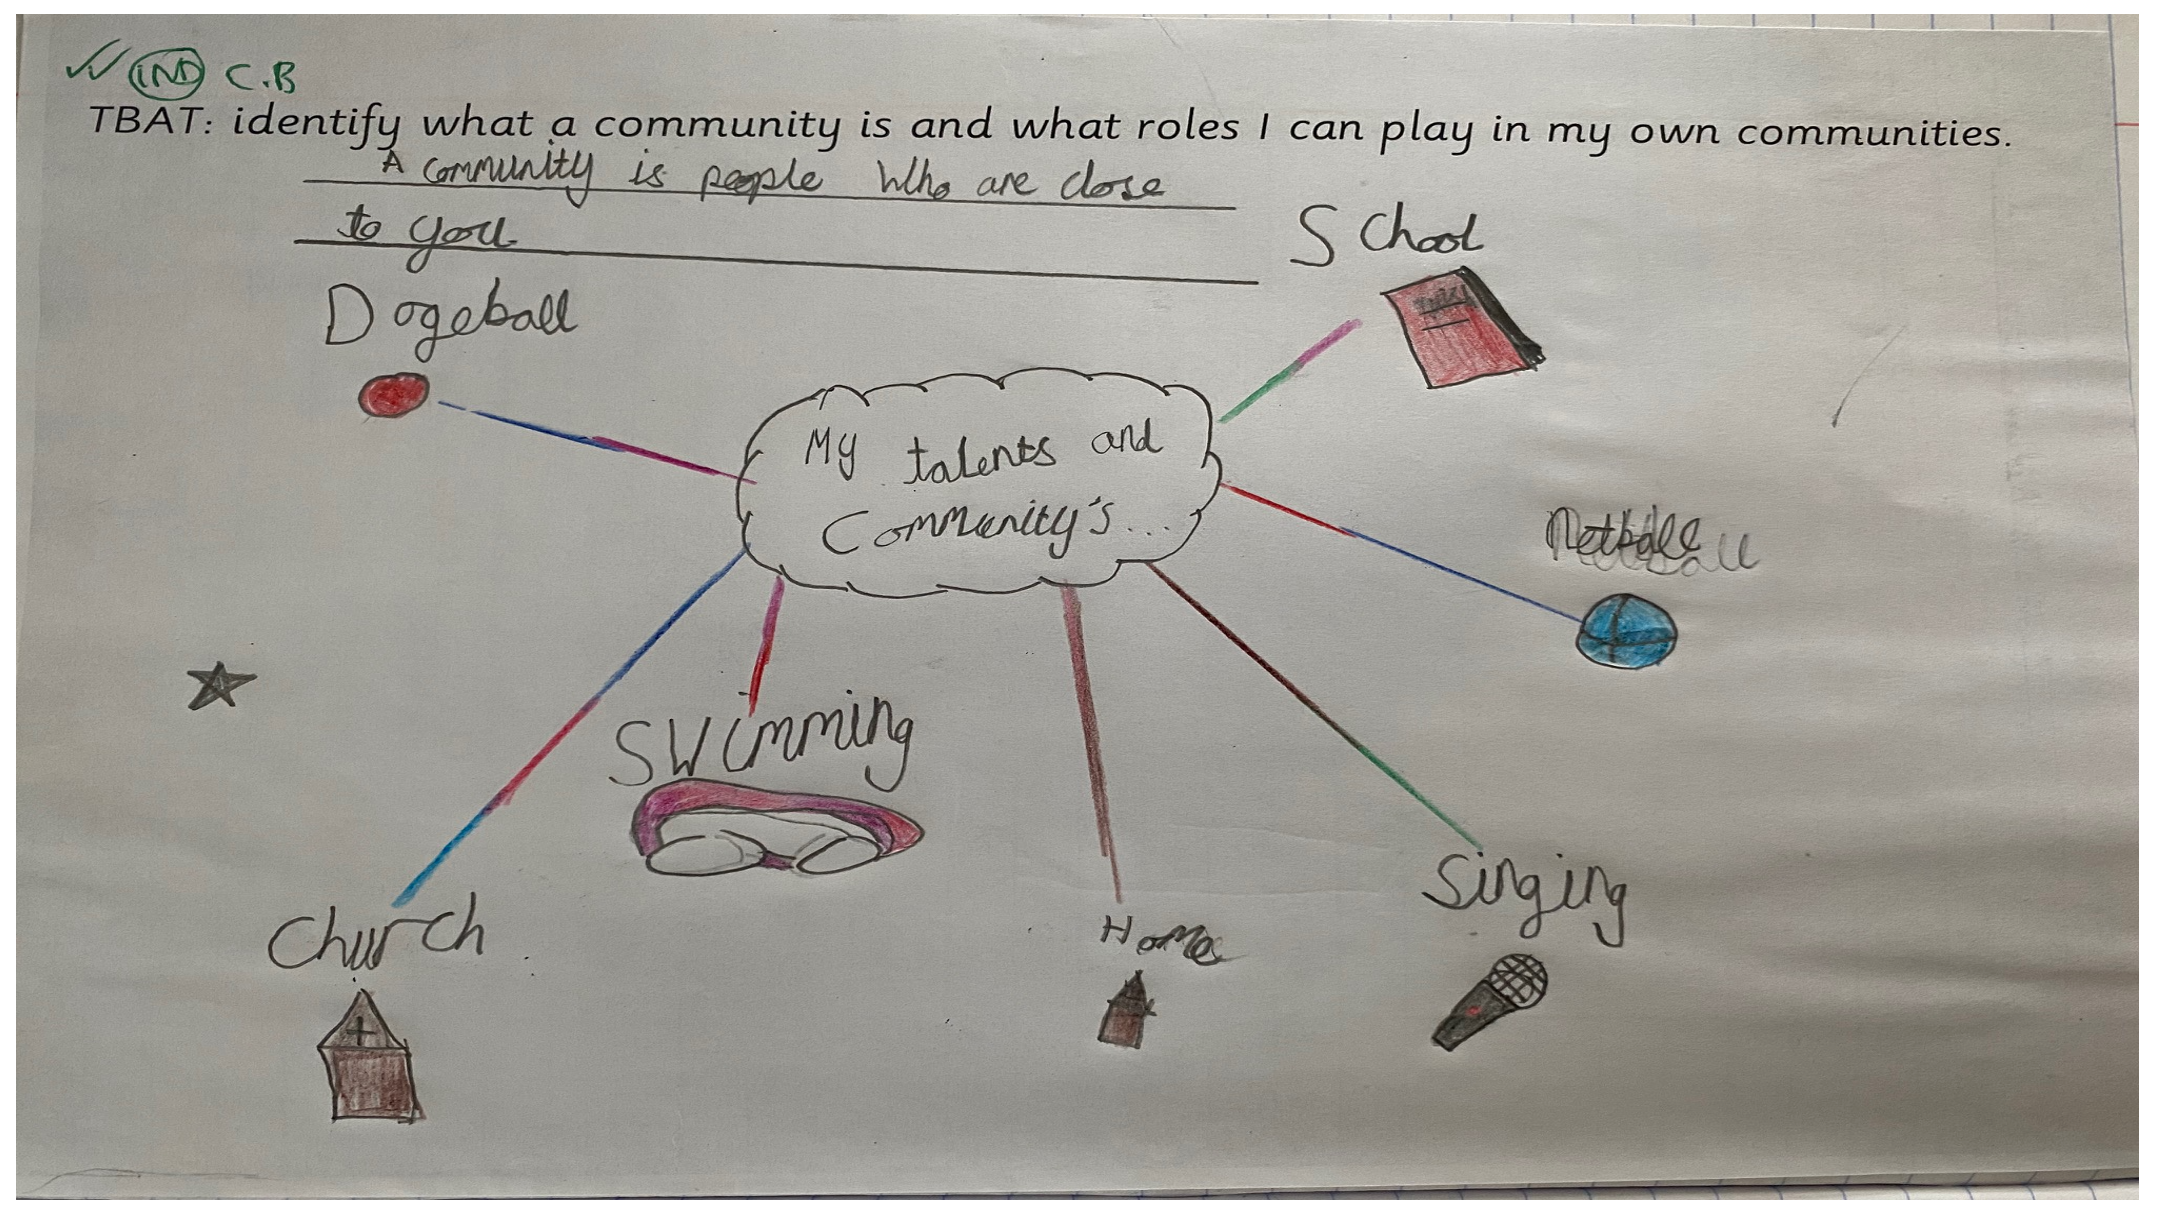 IND C.B
TBAT: identify what a community is and what roles I can play in my own communities.
A community is people who are close
to you
School
Dogeball
My talents and
Community's...
Netball
Swimming
Church
Home
Singing